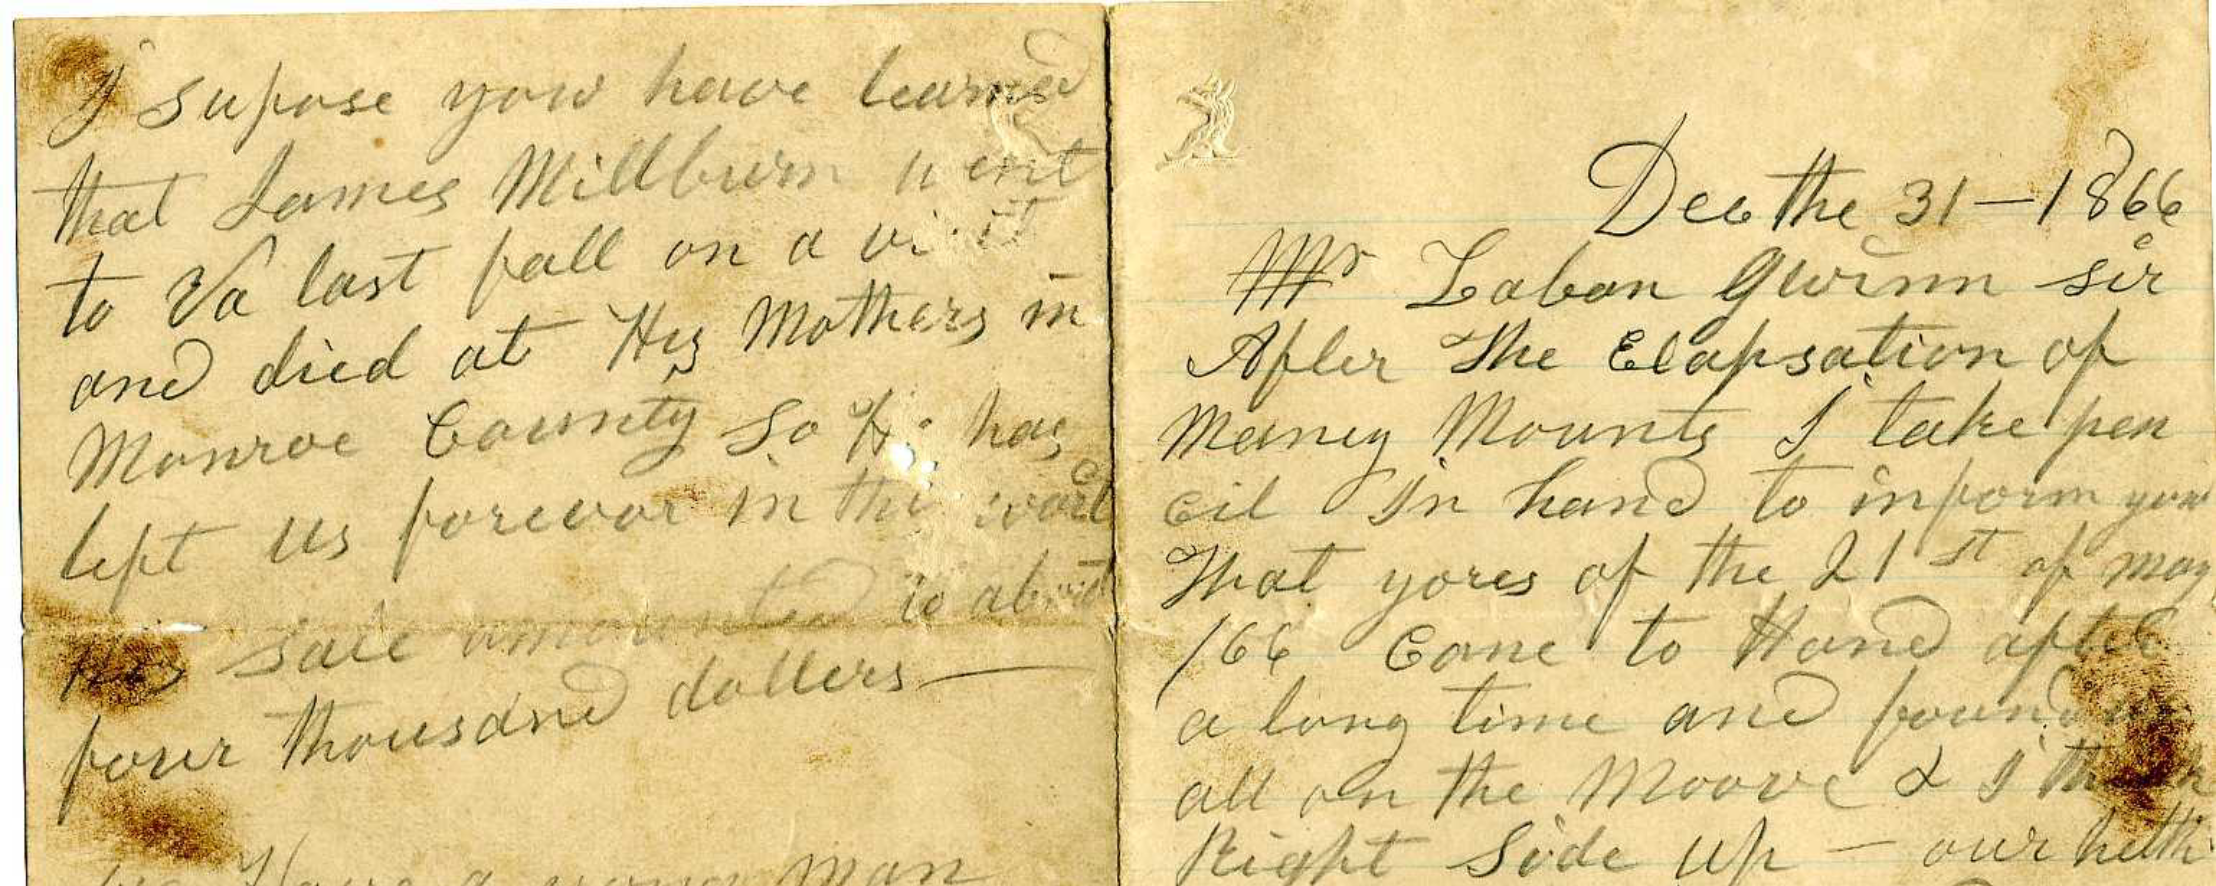 I supose yow have learned
that James Millburn went
to Va last fall on a visit
and died at His Mothers in
Monroe County So He has
left us forevor in this world
His sale amounted to about
four thousdnd dollers —
Have a young man
Dec the 31 — 1866
Mr Laban Gwinn sir
After The Elapsation of
Meney Mounts I take pen
cil In hand to inform yow
That yores of the 21st of may
/66 Came to Hand after
a long time and found us
all on the Moove & I think
Right Side up — our helth